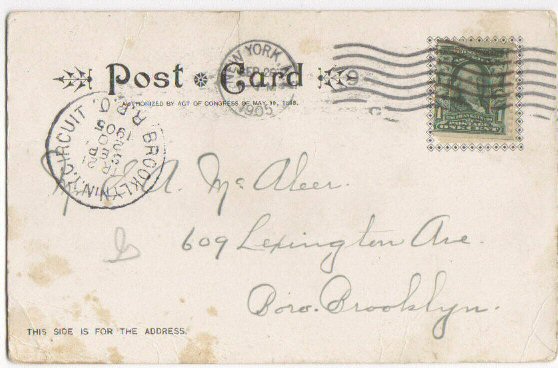 Post Card
AUTHORIZED BY ACT OF CONGRESS OF MAY 19, 1898.
NEW YORK, N.Y.
1905
BROOKLYN, N.Y. CIRCUIT R.P.O.
1905
A. McAleer.
609 Lexington Ave.
Boro. Brooklyn.
THIS SIDE IS FOR THE ADDRESS.